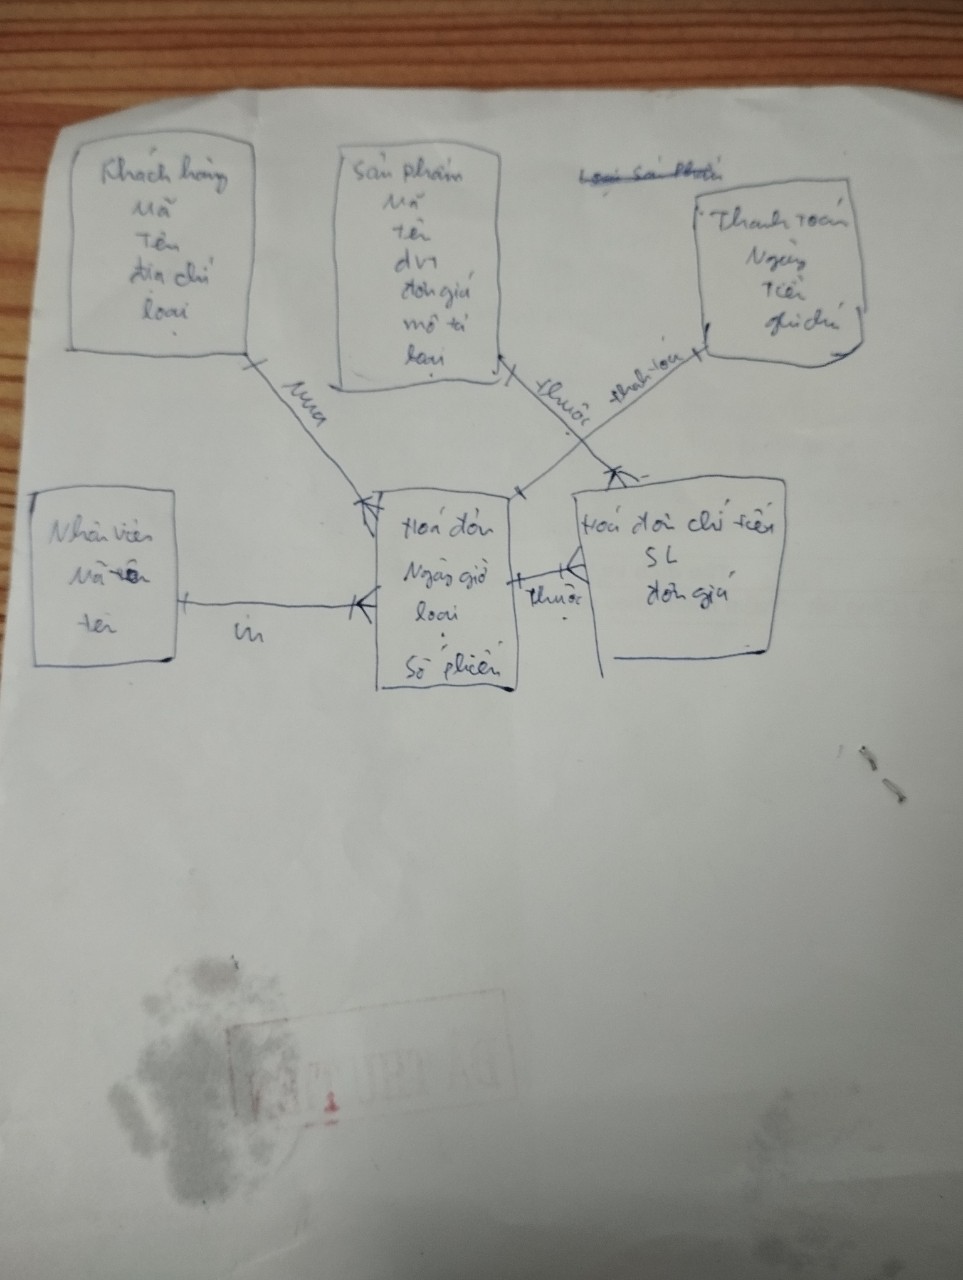 Khách hàng
Mã
Tên
địa chỉ
loại
Sản phẩm
Mã
tên
đvt
đơn giá
mô tả
loại
Loại Sản Phẩm
Thanh toán
Ngày
tiền
ghi chú
Mua
thuộc
thanh toán
Nhân viên
Mã
tên
in
Hoá đơn
Ngày giờ
loại
Số phiếu
thuộc
Hoá đơn chi tiết
SL
đơn giá
ĐÃ THU TIỀN